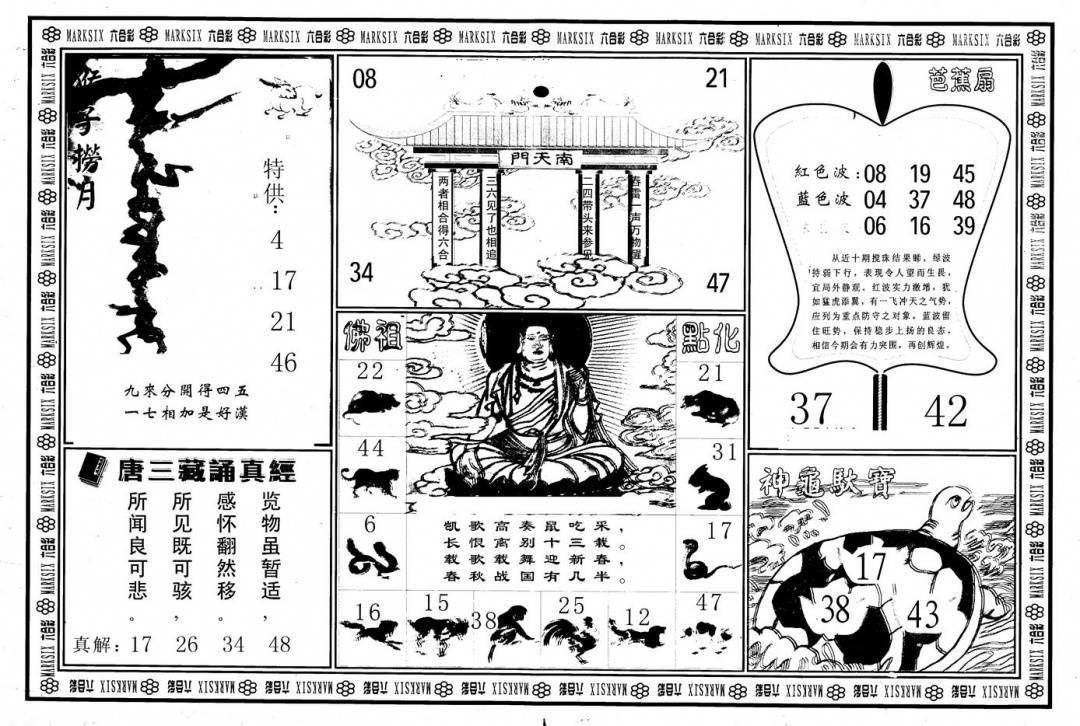 MARKSIX 六合彩 MARKSIX 六合彩 MARKSIX 六合彩 MARKSIX 六合彩 MARKSIX 六合彩 MARKSIX 六合彩 MARKSIX 六合彩 MARKSIX 六合彩 MARKSIX 六合彩 MARKSIX 六合彩
猴子撈月
特供:
4
17
21
46
九來分開得四五
一七相加是好漢
唐三藏誦真經
览物虽暂适,
感怀翻然移。
所见既可骇,
所闻良可悲。
真解: 17 26 34 48
08
21
南天門
春雷一声万物醒
二四带头来参见
三六见了也相追
两者相合得六合
34
47
佛祖
點化
22
21
44
31
6
17
凯歌高奏鼠吃采,
长恨离别十三载。
载歌载舞迎新春,
春秋战国有几半。
16
15
38
25
12
47
芭蕉扇
紅色波: 08 19 45
藍色波 04 37 48
06 16 39
从近十期搅珠结果睇,绿波
特弱下行,表现令人望而生畏,
宜局外静观。红波实力激增,犹
如猛虎添翼,有一飞冲天之气势,
应列为重点防守之对象。蓝波留
住旺势,保持稳步上扬的良态,
相信今期会有力突围,再创辉煌。
37
42
神龜馱寶
17
38
43